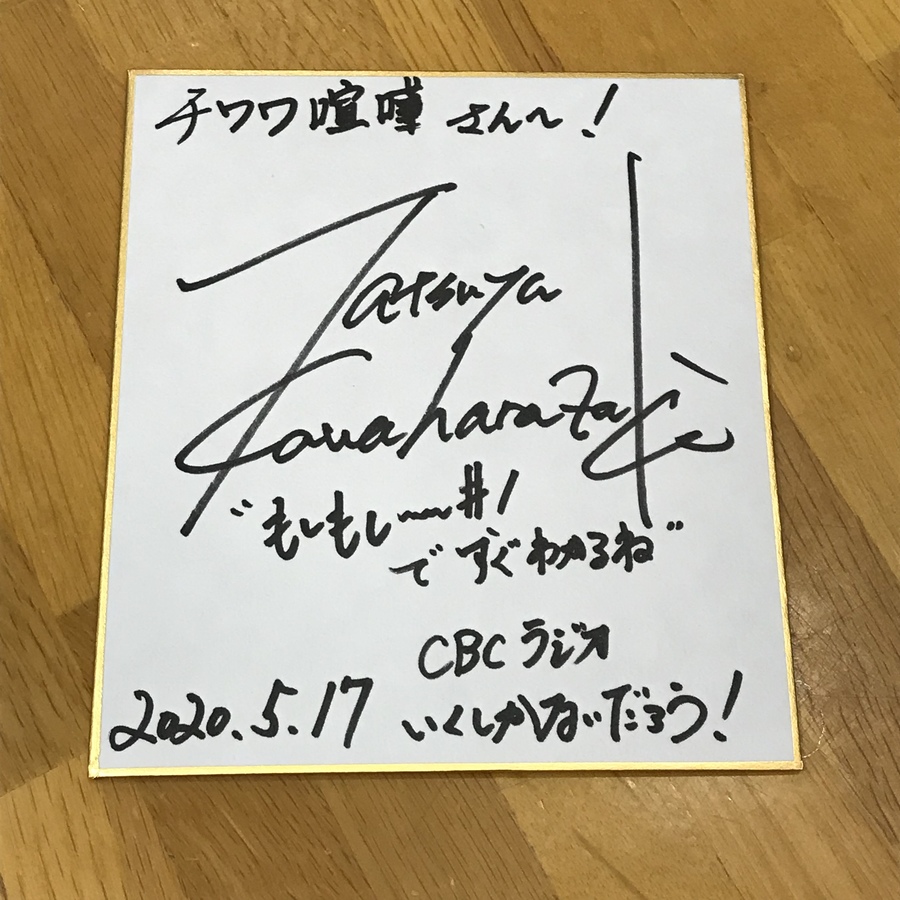 チワワ喧嘩さんへ!
Tatsuya
Kawaharazaki
"もしもし〜〜#1
ですぐわかるね"
CBCラジオ
2020.5.17 いくしかないだろう!